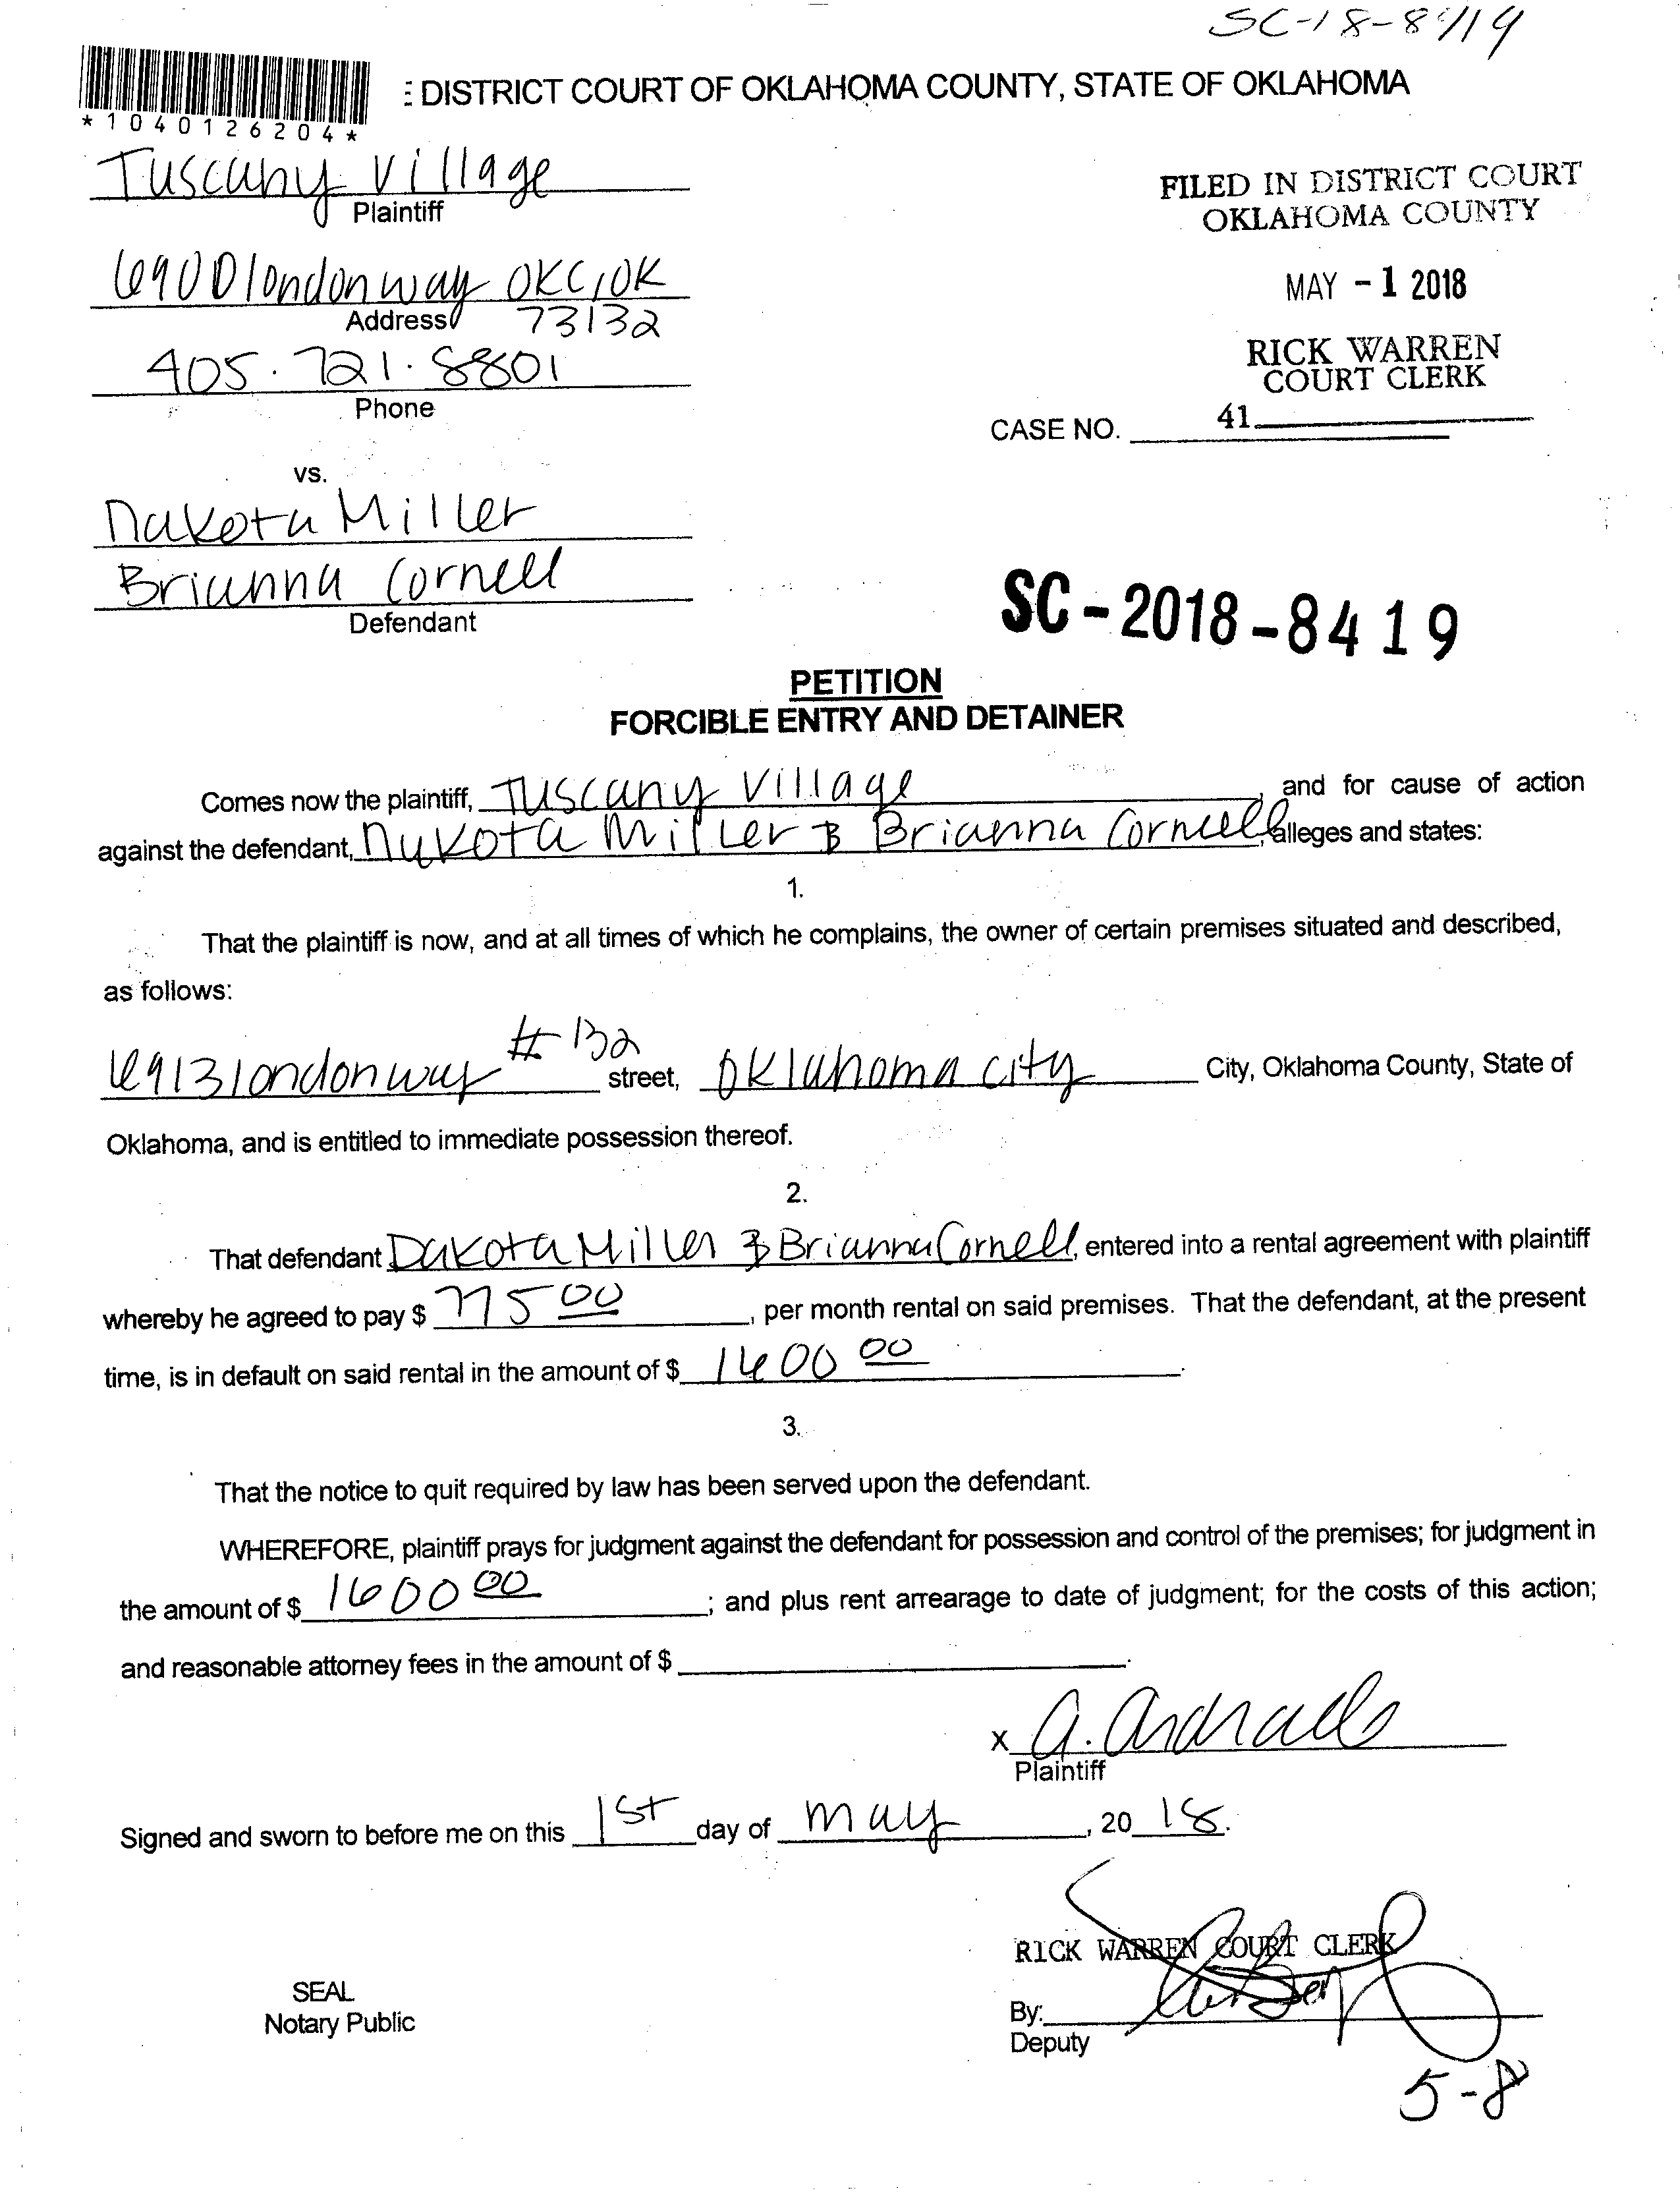 SC-18-8419
*1040126204*
E DISTRICT COURT OF OKLAHOMA COUNTY, STATE OF OKLAHOMA
Tuscany Village
Plaintiff
FILED IN DISTRICT COURT
OKLAHOMA COUNTY
6900 london way OKC, OK
Address 73132
MAY - 1 2018
405.721.8801
Phone
RICK WARREN
COURT CLERK
CASE NO. 41
vs.
Dakota Miller
Brianna Cornell
Defendant
SC-2018-8419
PETITION
FORCIBLE ENTRY AND DETAINER
Comes now the plaintiff, Tuscany Village, and for cause of action
against the defendant, Dakota Miller & Brianna Cornell, alleges and states:
1.
That the plaintiff is now, and at all times of which he complains, the owner of certain premises situated and described,
as follows:
6913 london way #132 street, Oklahoma city City, Oklahoma County, State of
Oklahoma, and is entitled to immediate possession thereof.
2.
That defendant Dakota Miller & Brianna Cornell, entered into a rental agreement with plaintiff
whereby he agreed to pay $ 775 00, per month rental on said premises. That the defendant, at the present
time, is in default on said rental in the amount of $ 1600 00.
3.
That the notice to quit required by law has been served upon the defendant.
WHEREFORE, plaintiff prays for judgment against the defendant for possession and control of the premises; for judgment in
the amount of $ 1600 00; and plus rent arrearage to date of judgment; for the costs of this action;
and reasonable attorney fees in the amount of $
x A. Andrade
Plaintiff
Signed and sworn to before me on this 1st day of may, 20 18.
RICK WARREN COURT CLERK
SEAL
Notary Public
By:
Deputy
5-8